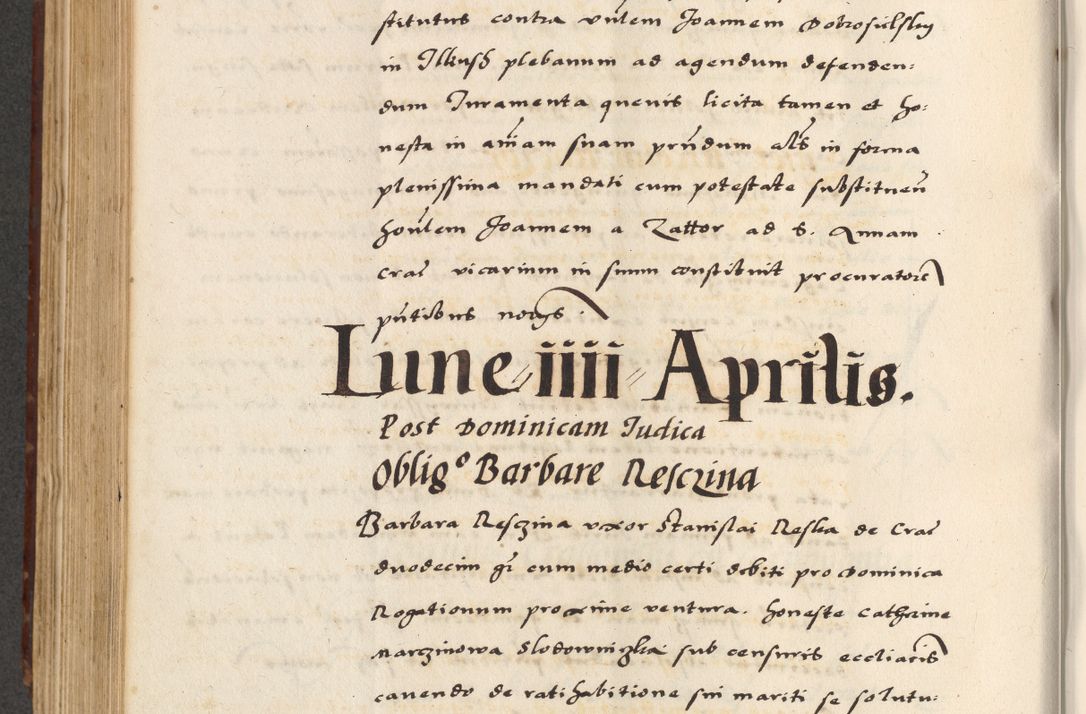 stitutus contra vn̄lem Joannem Dobrosielsky
in Ilkusch plebanum ad agendum defenden:
dum Juramenta quevis licita tamen et ho:
nesta in aīam suam prn̄dum als in forma
plenissima mandati cum potestate substituen̄
hon̄lem Joannem a Zattor ad S. Annam
Crac̄ vicarium in suum constituit procuratorē
pn̄tibus
Lune iiii Aprilis.
Post Dominicam Judica
Oblig° Barbare Resczina
Barbara Resczina vxor Stanislai Reska de Crac̄
duodecim gr̄ cum medio certi debiti pro Dominica
Rogationum proxime ventura. honeste Catherine
Marczinowa Slodowniczka sub censuris eccliacis
cavendo de ratihabitione sui mariti se solutu: